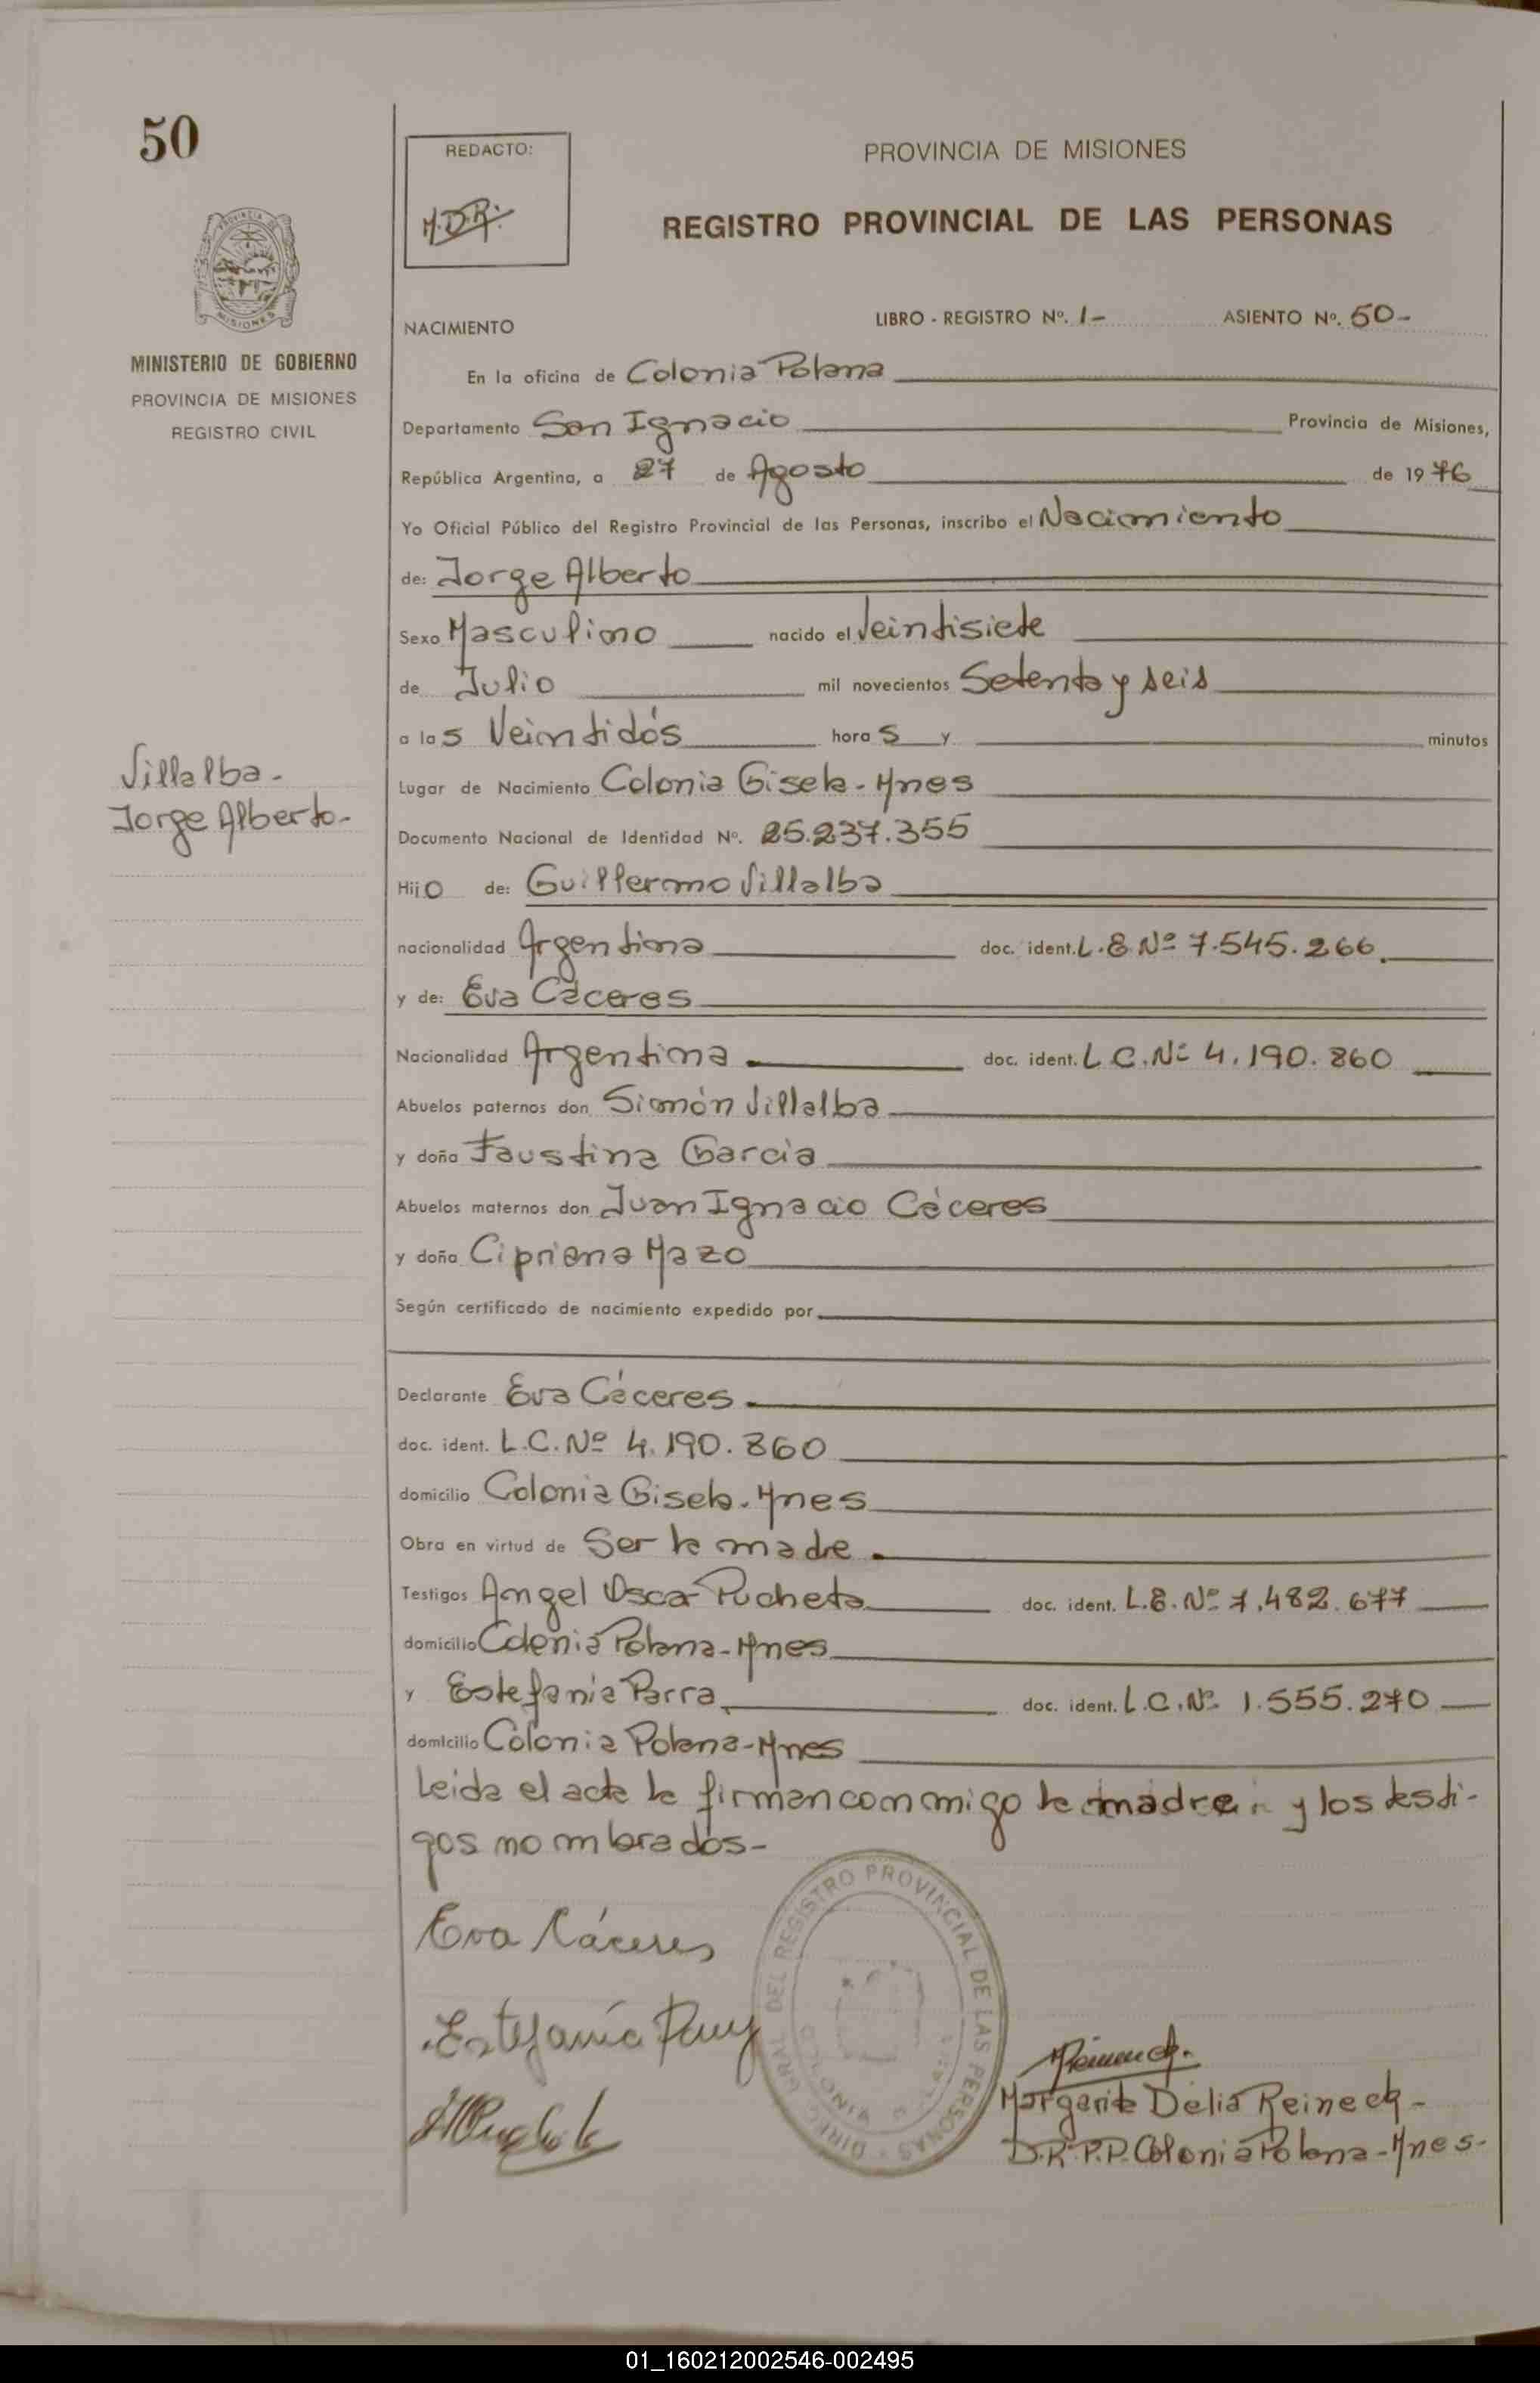 50
REDACTO:
M.D.R.
PROVINCIA DE MISIONES
REGISTRO PROVINCIAL DE LAS PERSONAS
MINISTERIO DE GOBIERNO
PROVINCIA DE MISIONES
REGISTRO CIVIL
NACIMIENTO
LIBRO - REGISTRO Nº. 1- ASIENTO Nº. 50-
En la oficina de Colonia Polana
Departamento San Ignacio Provincia de Misiones,
República Argentina, a 27 de Agosto de 1976
Yo Oficial Público del Registro Provincial de las Personas, inscribo el Nacimiento
de: Jorge Alberto
Sexo Masculino nacido el Veintisiete
de Julio mil novecientos Setenta y seis
a las Veintidós horas y minutos
Villalba-
Jorge Alberto-
Lugar de Nacimiento Colonia Gisela-Mnes
Documento Nacional de Identidad Nº. 25.237.355
Hijo de: Guillermo Villalba
nacionalidad Argentina doc. ident. L.E. Nº 7.545.266.
y de: Eva Cáceres
Nacionalidad Argentina doc. ident. L.C. Nº 4.190.860
Abuelos paternos don Simón Villalba
y doña Faustina García
Abuelos maternos don Juan Ignacio Cáceres
y doña Cipriana Mazo
Según certificado de nacimiento expedido por
Declarante Eva Cáceres
doc. ident. L.C. Nº 4.190.860
domicilio Colonia Gisela-Mnes
Obra en virtud de Ser la madre.
Testigos Angel Oscar Pucheta doc. ident. L.E. Nº 7.482.677
domicilio Colonia Polana-Mnes
y Estefania Parra doc. ident. L.C. Nº 1.555.270
domicilio Colonia Polana-Mnes
Leida el acta la firman conmigo la madre y los testi-
gos nombrados-
Eva Cáceres
Estefanía
DIREC. GRAL DEL REGISTRO PROVINCIAL DE LAS PERSONAS
COLONIA POLANA
Margarita Delia Reineck-
D.R.P.P. Colonia Polana-Mnes-
01_160212002546-002495